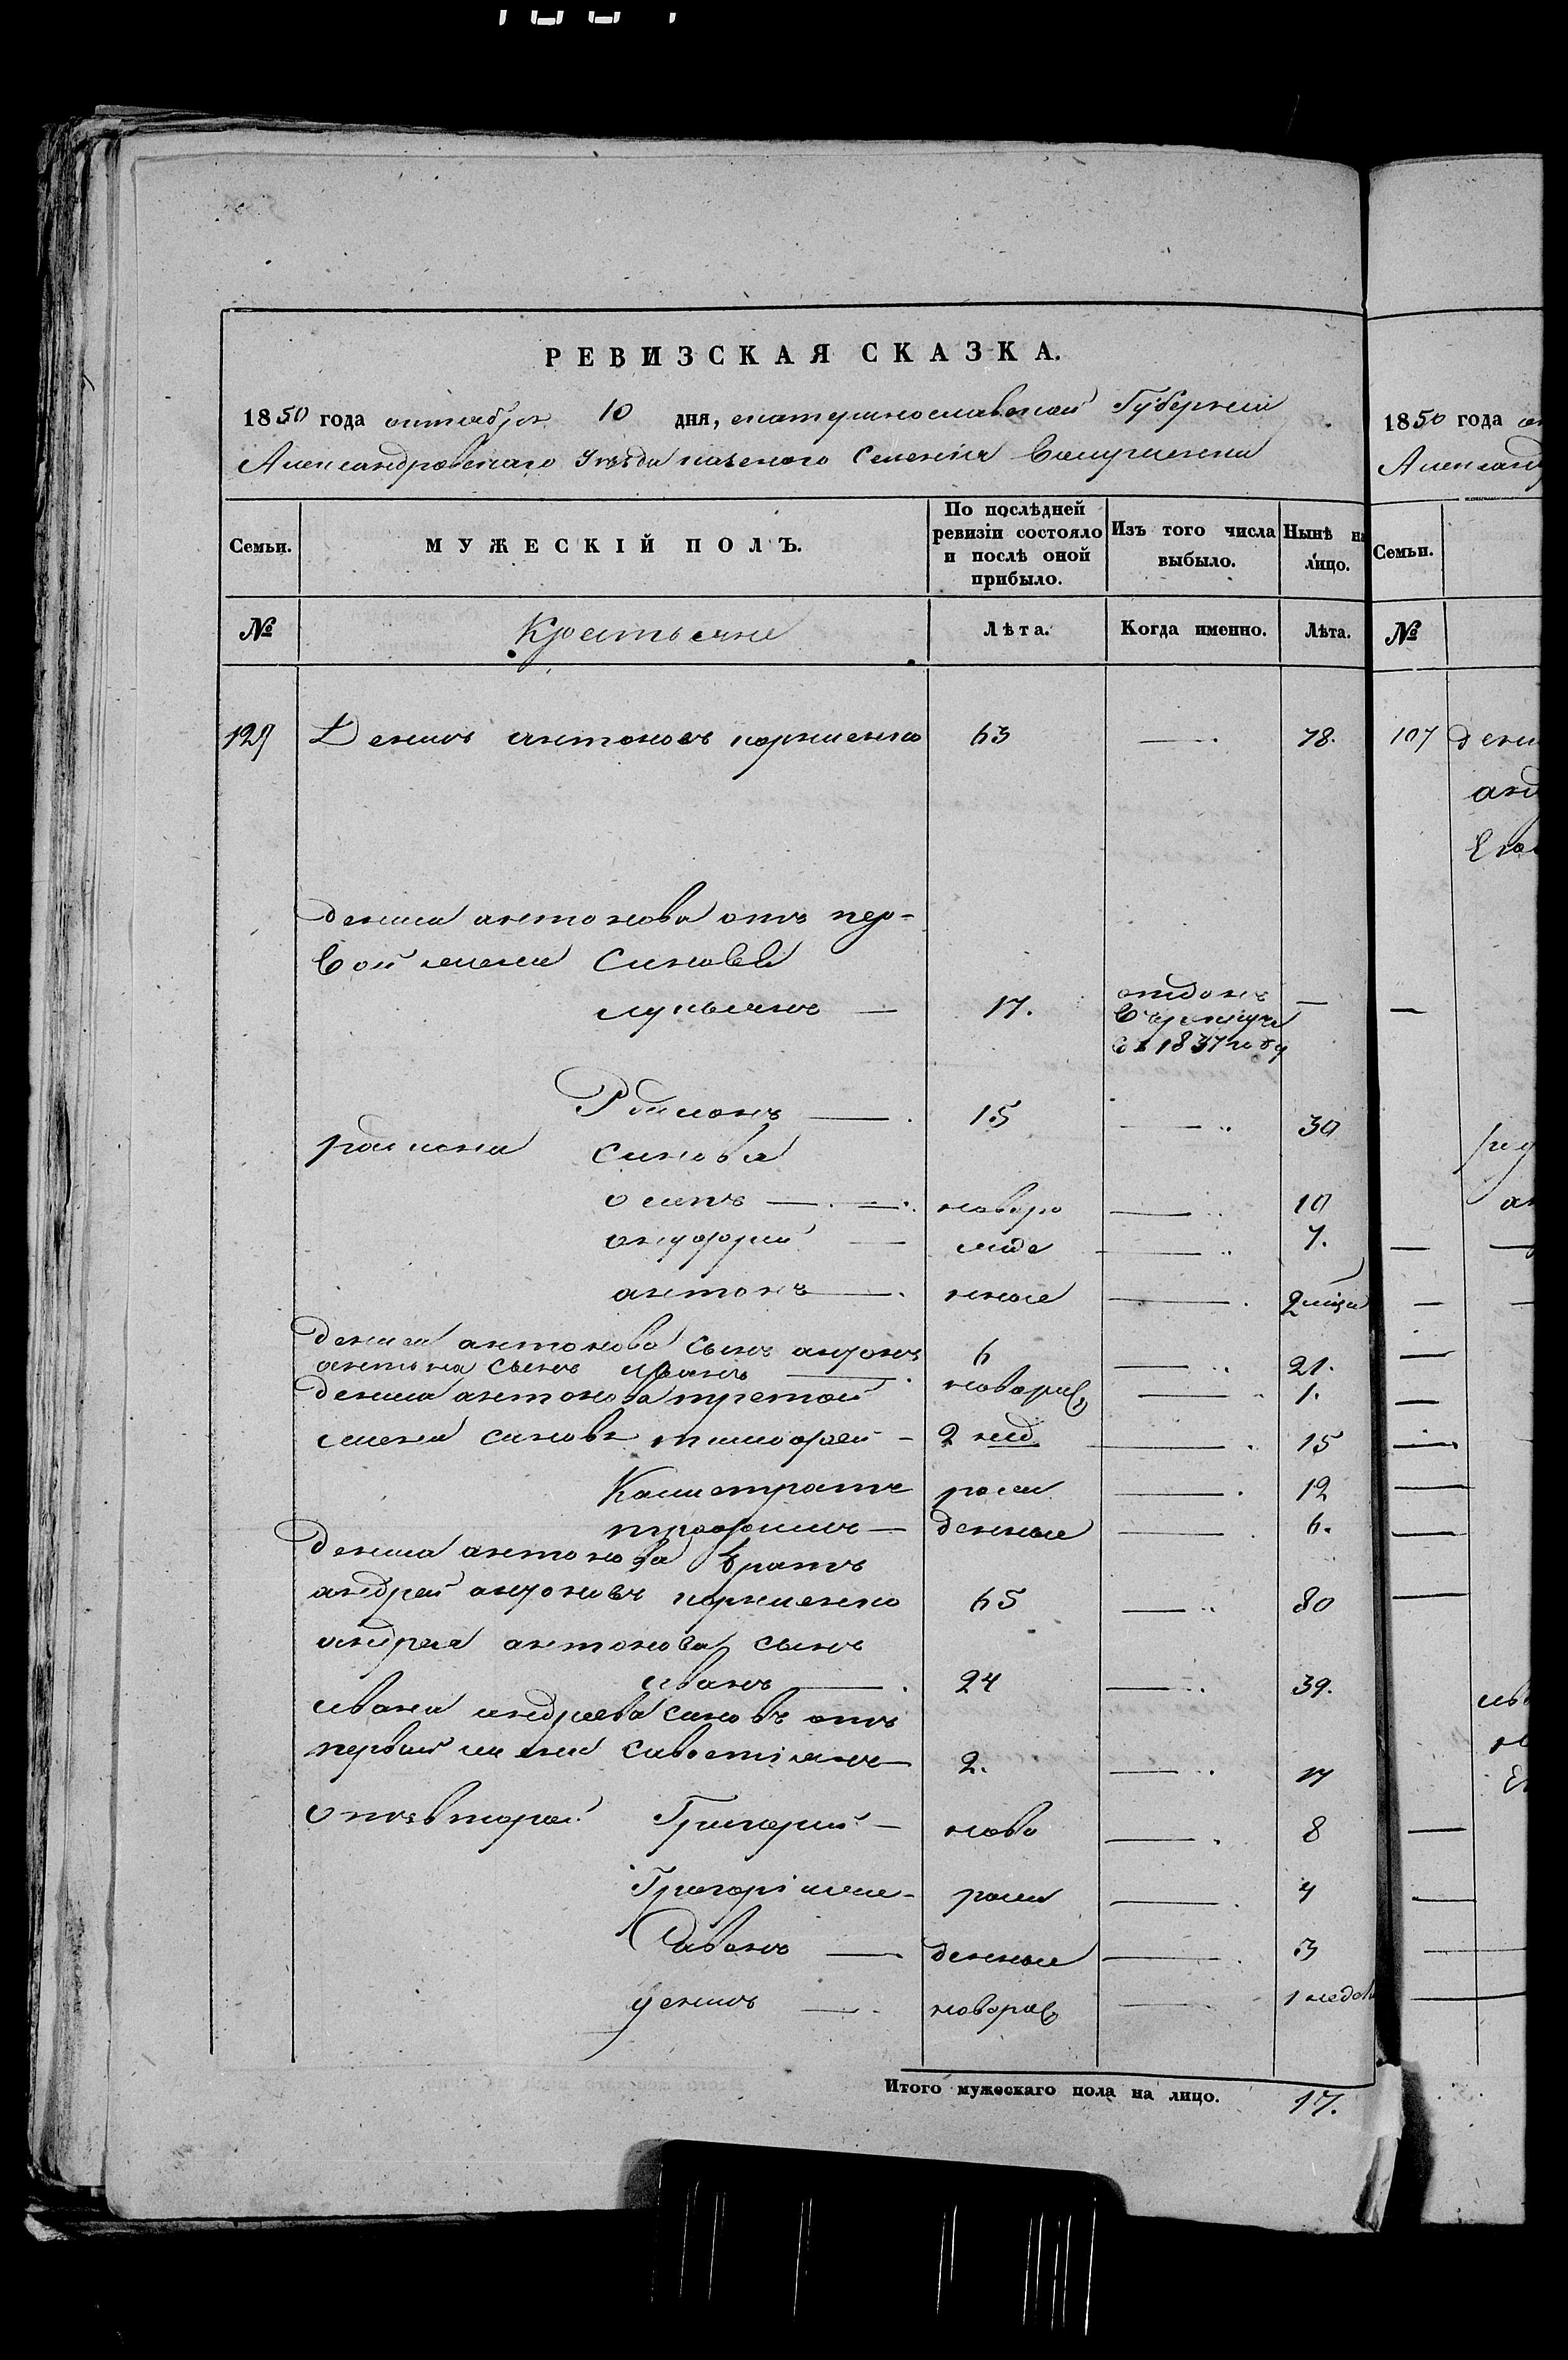 РЕВИЗСКАЯ СКАЗКА.
1850 года октября 10 дня, екатеринославской Губерніи
Александровскаго Уезда казеного Селенія
Семьи. МУЖЕСКІЙ ПОЛЪ. По послѣдней ревизіи состояло и послѣ оной прибыло. Изъ того числа выбыло. Нынѣ на лицо.
№ Крестьяне Лѣта. Когда именно. Лѣта.
Денисъ антоновъ корниенко 63 — 78.
дениса антонова отъ пер-
вой жены синовя
лукьянъ — 17. отданъ — 
в рекруты
в 1837 году
Романъ — 15 — 30
романа синовя
осипъ — новоро — 10
онуфрий — жде — 7.
антонъ — нные — 2 мцы
дениса антонова сынъ антонъ 6 — 21.
антона сынъ иванъ — новорож — 1.
дениса антонова третой
жени синовя тимофей — 2 нед — 15
Калистратъ рож — 12
трофимъ — денные — 6.
дениса антонова братъ
андрей антоновъ корниенко 65 — 80
андрея антонова сынъ
иванъ — 24 — 39.
ивана андреева синовъ отъ
первой жени савостіянъ — 2. — 17
отъ второй Григорий — ново — 8
Григорій — рож — 4
— денные — 3
денисъ — новорож — 1 недели
Итого мужескаго пола на лицо. 17.
1850 года
Александ
Семьи.
№
107 дени
анд